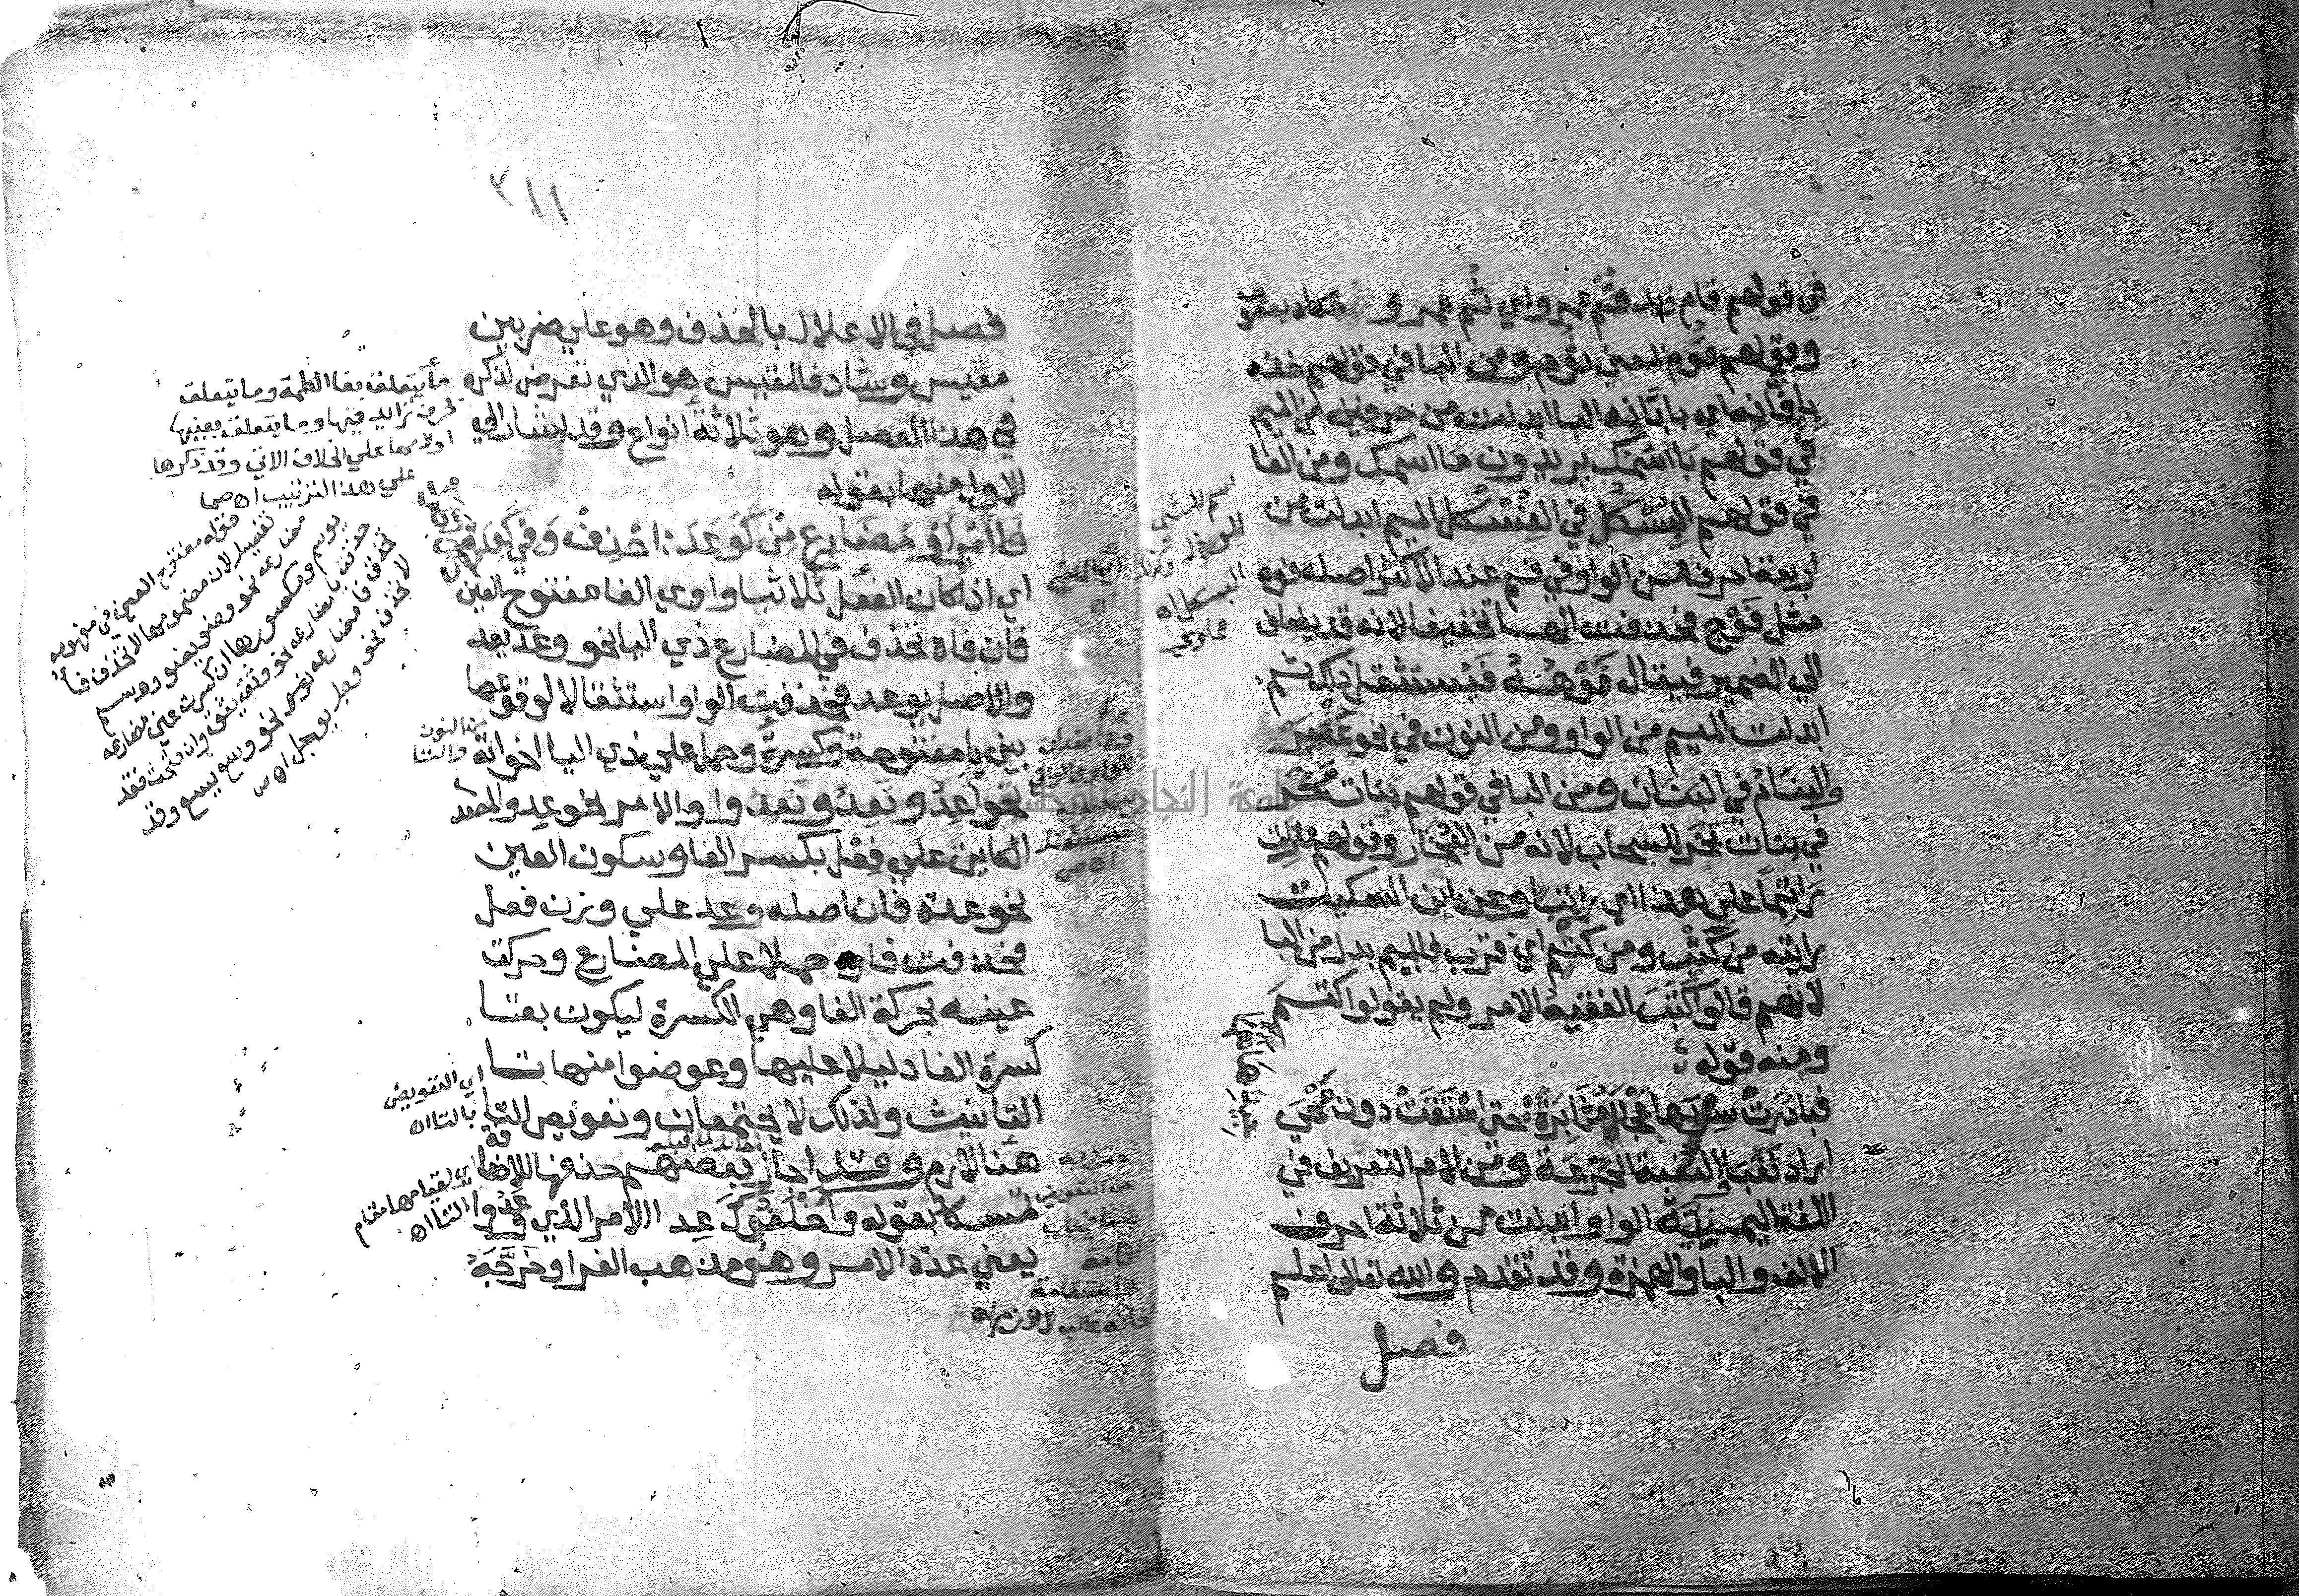 في قولهم قام زيد فُمَّ عمرو اي ثُم عمرو حكاه يعقوب
وقولهم فُوم بمعني ثوم ومن البا في قولهم خذه
بافَّانِه اي بابَّانه البا ابدلت من حرفين من الميم
في قولهم بَا اسْمُك يريدون مَا اسمك ومن الفا
في قولهم البُسْكُل في الفُسْكُل الميم ابدلت من
اربعة احرف من الواو في فم عند الاكثر اصله فوه
مثل فَوْج فحذفت الها تخفيفا لانه قد يضاف
الي الضمير فيقال فَوْهُهُ فيُستثقل ذلك ثم
ابدلت الميم من الواو ومن النون في نحو عَنْبَر
والبنَامُ في البَنَان ومن البا في قولهم بنات مَخْر
في بنات بَخَر للسحاب لانه من البُخَار وقولهم ما زلت
رَاتِمًا علي هذا اي راتبا وعن ابن السكيت
رايته من كَثَبٍ ومن كَثَمٍ اي قرب فالميم بدل من البا
لانهم قالوا كَتَبَ الفقيهُ الامر ولم يقولوا اكتم
ومنه قوله
فبادَرَتْ سِرْبَها عَجْلَى مُثَابِرَةً حتى اسْتَقَتْ دون
اراد نُغَبَا النُّغبة الجَرْعَة ومن لام التعريف في
اللغة اليمنيَّة الواو ابدلت من ثلاثة احرف
الالف واليا والهمزة وقد تقدم والله تعالى اعلم
فصل
اسم
البسكل اه
٣١١
فصل في الاعلال بالحذف وهو علي ضربين
مقيس وشاذ فالمقيس هو الذي تعرض لذكره
في هذا الفصل وهو ثلاثة انواع وقد اشار الي
الاول منها بقوله
فَا امْرٍ أوْ مُضَارِعٍ مِنْ كَوَعَدَ احْذِفْ وَفي كَعِدَةٍ
اي اذا كان الفعل ثلاثيا واوي الفا مفتوح العين
فان فاه تحذف في المضارع ذي اليا نحو وعد يعد
والاصل يوعد فحذفت الواو استثقالا لوقوعها
بين يا مفتوحة وكسرة وحمل علي ذي اليا اخواتهُ
نحو أعِدُ ونَعِدُ وتَعِدُ والامر نحو عِد والمصدر
الكاين علي فِعْل بكسر الفا وسكون العين
نحو عدة فان اصله وعد علي وزن فعل
فحذفت فاوه حملا علي المضارع وحركت
عينه بحركة الفا وهي الكسرة ليكون بقا
كسرة الفا دليلا عليها وعوضوا منها تا
التانيث ولذلك لا يجتمعان وتعويض التا
هنا لازم وقد اجاز بعضهم حذفها للاضافة
تمسكا بقوله وأَخْلَفُوكَ عِدَ الامر الذي وَعَدُوا
يعني عدة الامر وهو مذهب الفرا وخَرَّجَهُ
ما يتعلق بفا الكلمة وما يتعلق
بحرف زايد فيها وما يتعلق بعينها
اولامها علي الخلاف الاتي وقد ذكرها
علي هذا الترتيب اه
قوله مفتوح العين في مفهومه
تفصيل لان مضمومها لا تحذف فا
مضارعه نحو وضو يوضو ووسم
يوسم ومكسورها ان كسرت عين مضارعه
حذفت فا مضارعه نحو وثق يثق وان فتحت فقد
لا تحذف نحو وجل يوجل اه
أي الماضي
اه
وهما ضدان
للواو والواقع
بين ضدين
مستثقل
اه
من النون
والتا
اي التعويض
بالتا اه
اي لقيامها مقام
التا اه
احترز به
عن التعويض
بالتا في باب
اقامة
واستقامة
فانه غالب لا لازم اه